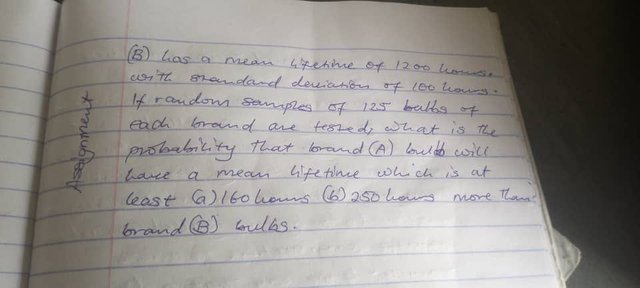 Assignment
(B) has a mean lifetime of 1200 hours.
with standard deviation of 100 hours.
If random samples of 125 bulbs of
each brand are tested, what is the
probability that brand (A) bulb will
have a mean lifetime which is at
least (a) 160 hours (b) 250 hours more than
brand (B) bulbs.